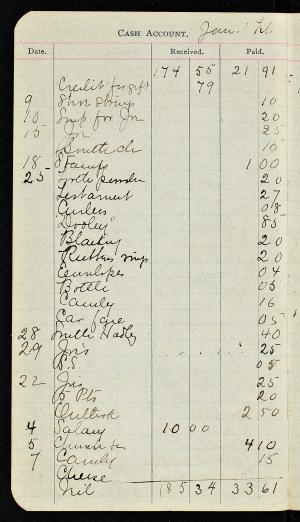 CASH ACCOUNT. Jan.
Date. Received. Paid.
174 55 21 91
Credit for gift 79
9 Shoe strings 10
10 Soup for Jn 20
15 Jn 25
10
18 Stamps 1 00
25 Tooth powder 20
Testament 27
Curlers 08
"Dooley" 85
Blacking 20
Rubber rings 20
Envelopes 04
Bottle 05
Candy 16
Car fare 05
28 Smith Hadley 40
29 Jns 25
S.S. 05
22 Jns 25
Pts 20
Outlook 2 50
4 Salary 10 00
5 Church 4 10
7 Candy 15
Cheese
Mil 185 34 33 61